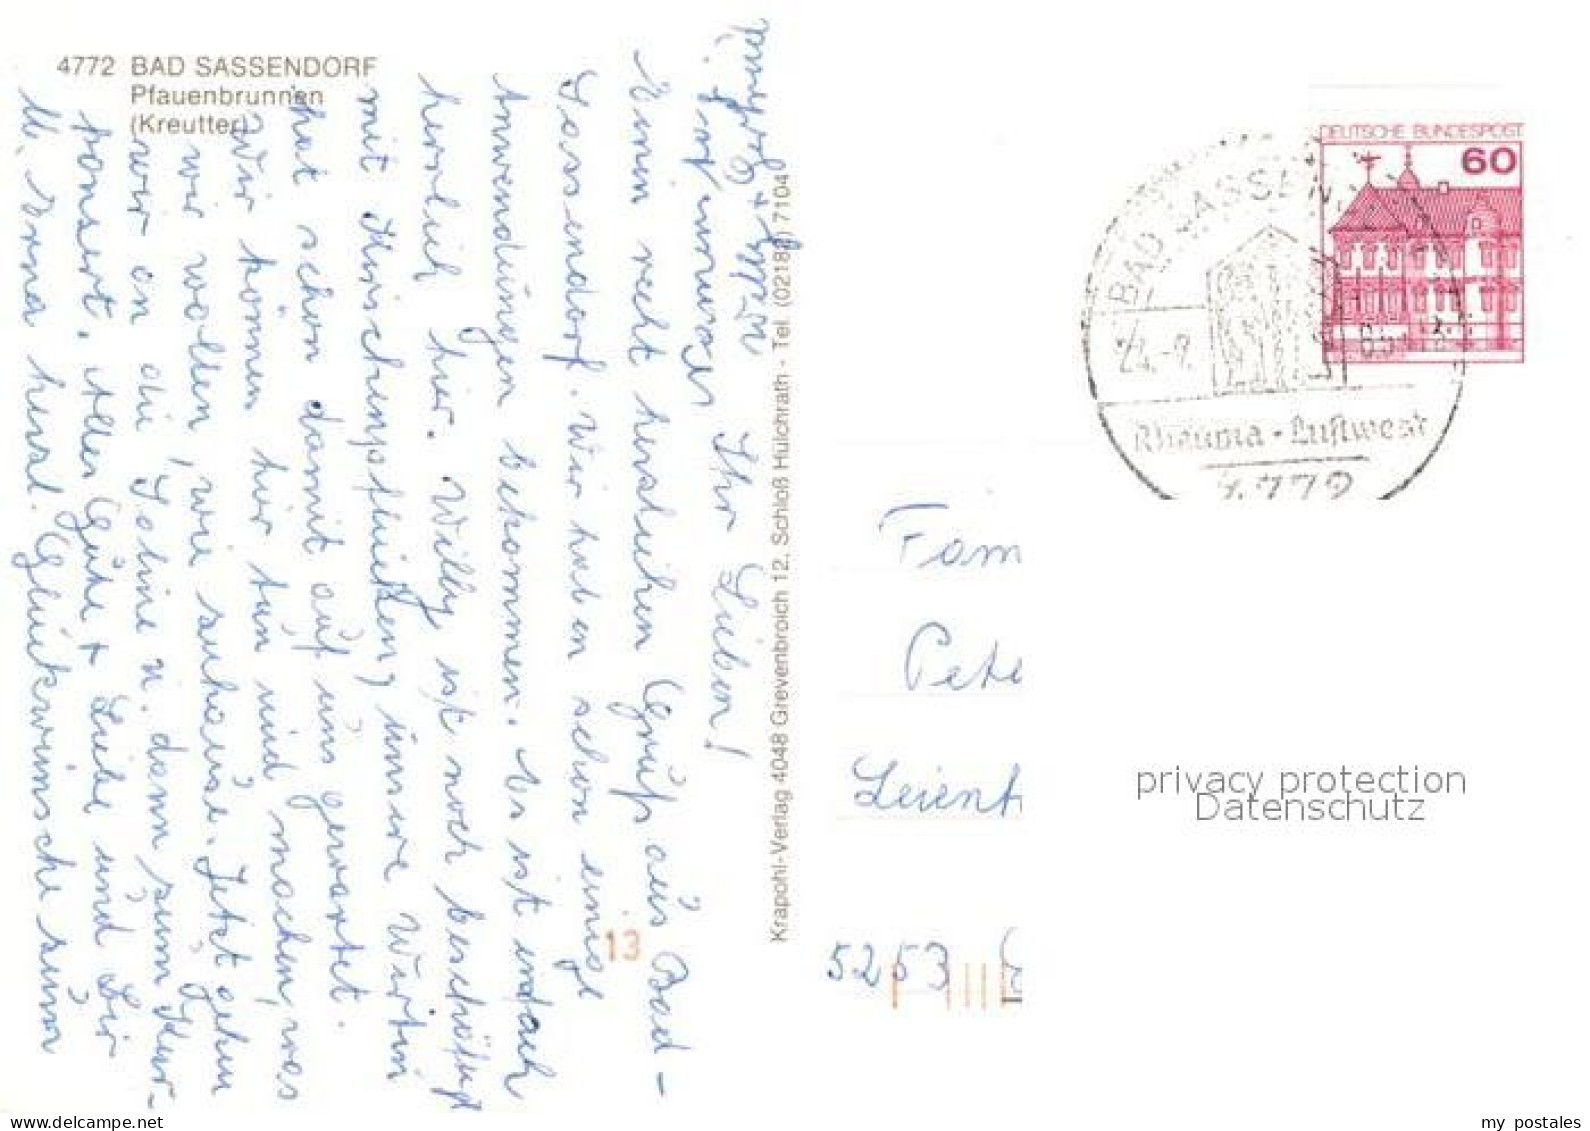 4772 BAD SASSENDORF
Pfauenbrunnen
(Kreutter)
Ihr Lieben!
Einen recht herzlichen Gruß aus Bad-
Sassendorf. Wir haben schon einige
Anwendungen bekommen. Es ist einfach
herrlich hier. Willy ist noch beschäftigt
mit Kirschenpflücken, unsere Wirtin
hat schon damit auf uns gewartet.
Wir können hier tun und machen, was
wir wollen, wie zuhause. Jetzt gehen
wir an die Sohne u. dann zum Kur-
konzert. Alles Gute + Liebe und Dir
lb. Erna herzl. Glückwünsche zum
Krapohl-Verlag 4048 Grevenbroich 12, Schloß Hülchrath - Tel. (02182) 7104
13
DEUTSCHE BUNDESPOST
60
BAD SASSENDORF
24.-9.
Rheuma - Luftweg
Fam
Pete
Leienh
5253
privacy protection
Datenschutz
my postales